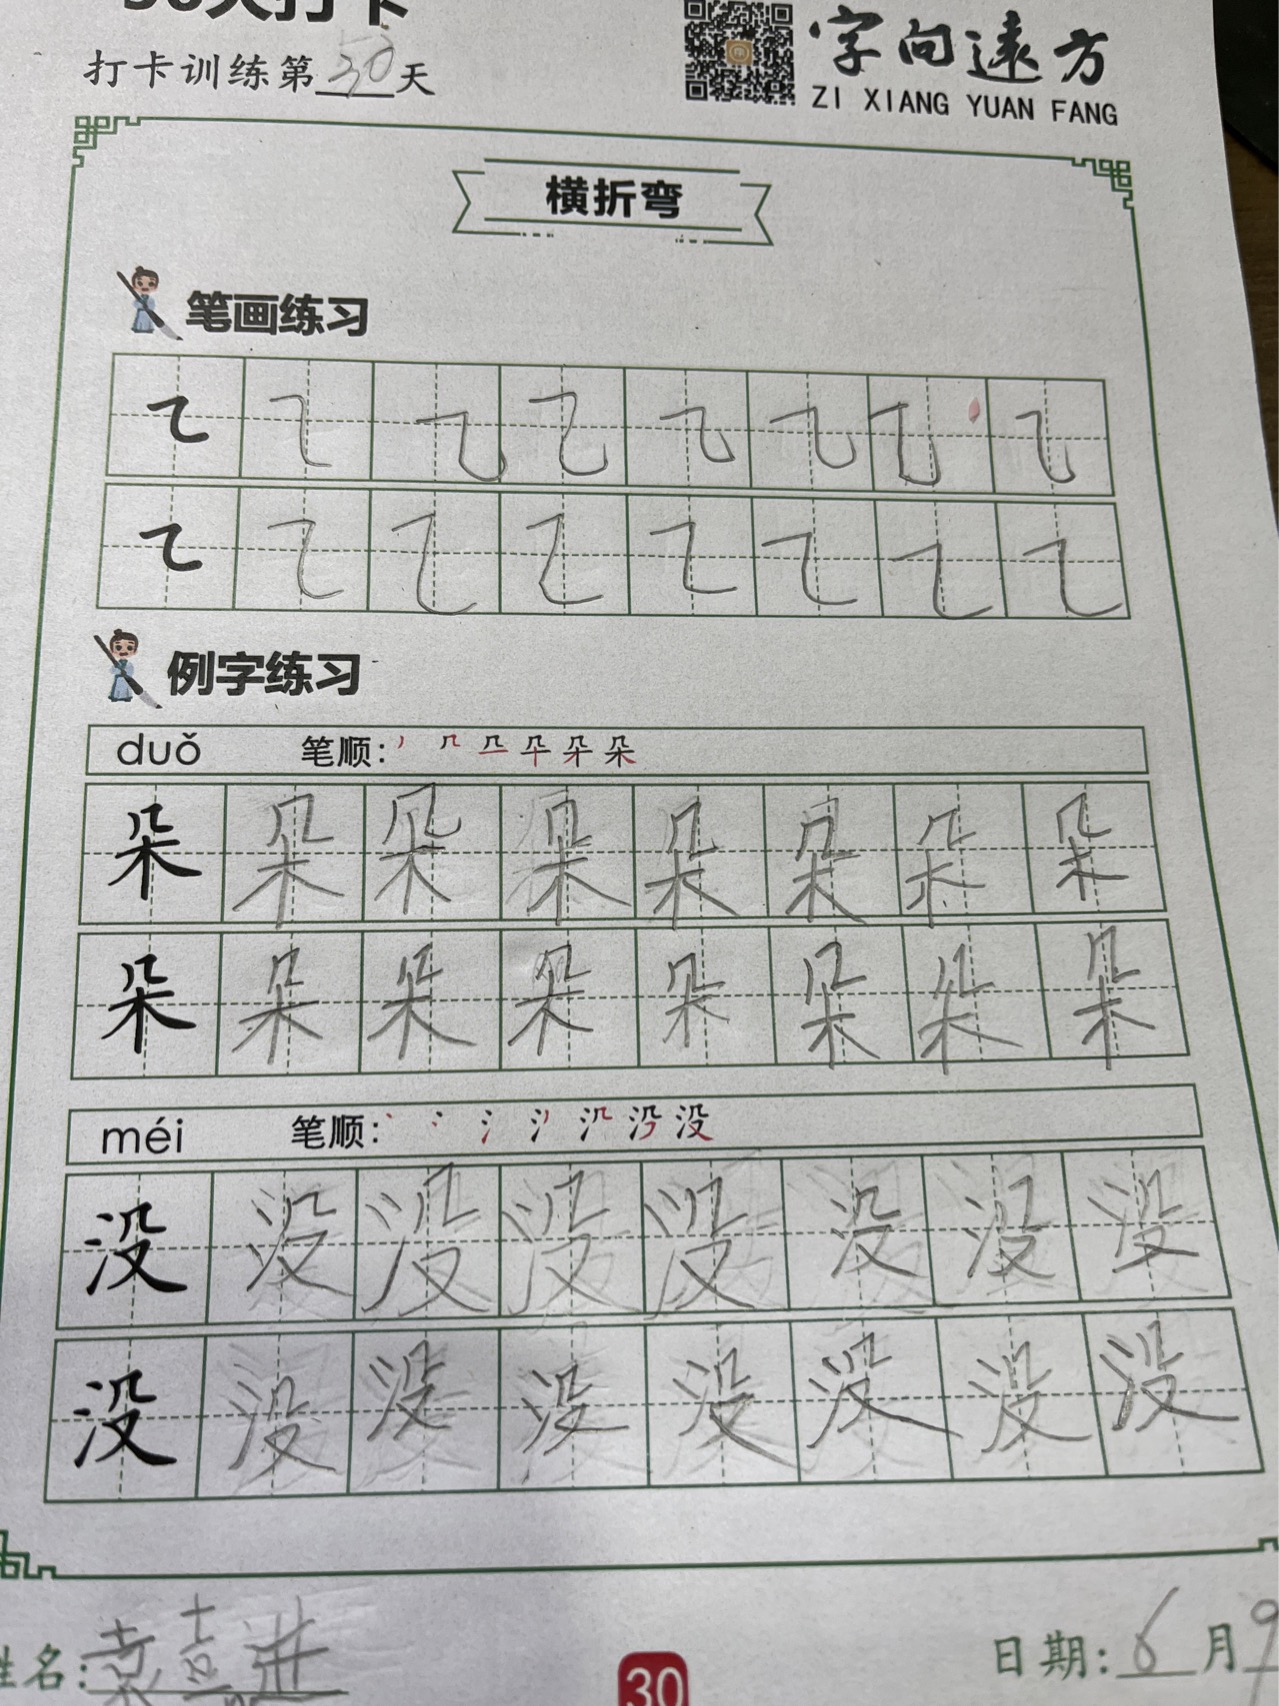 30天打卡
打卡训练第30天
字向远方
ZI XIANG YUAN FANG
横折弯
笔画练习
例字练习
duǒ 笔顺:
朵 朵 朵 朵 朵 朵 朵 朵
朵 朵 朵 朵 朵 朵 朵 朵
méi 笔顺:
没 没 没 没 没 没 没 没
没 没 没 没 没 没 没 没
姓名:袁喜进
日期:6月9
30